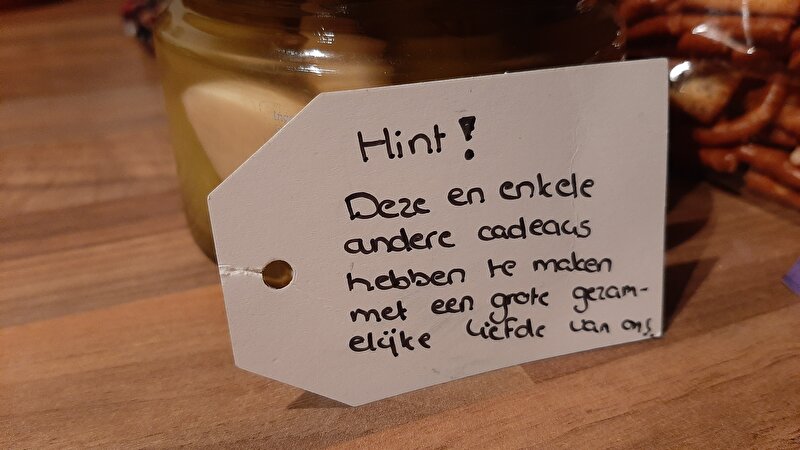 Hint!
Deze en enkele
andere cadeaus
hebben te maken
met een grote gezam-
elijke liefde van ons.